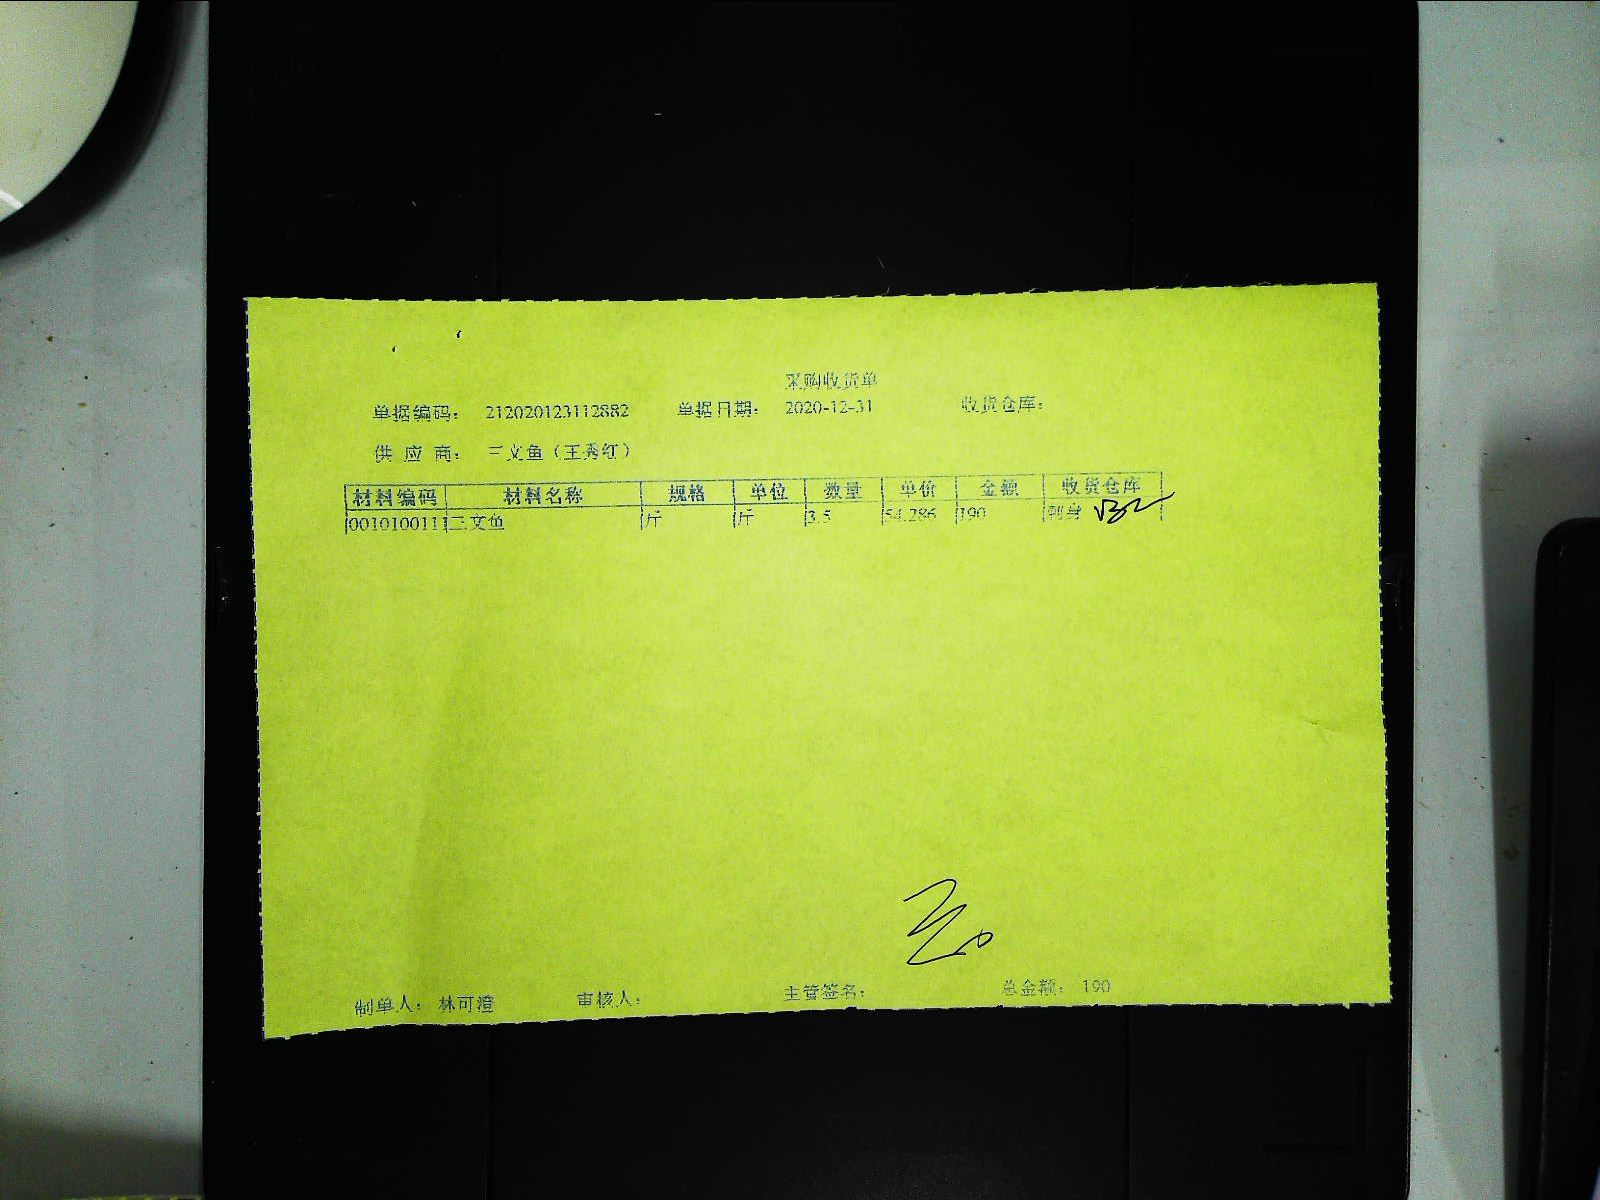 采购收货单
单据编码: 212020123112882 单据日期: 2020-12-31 收货仓库:
供应商: 三文鱼(王秀红)
材料编码 材料名称 规格 单位 数量 单价 金额 收货仓库
0010100111 三文鱼 斤 斤 3.5 54.286 190 刺身
制单人: 林可澄 审核人: 主管签名: 总金额: 190